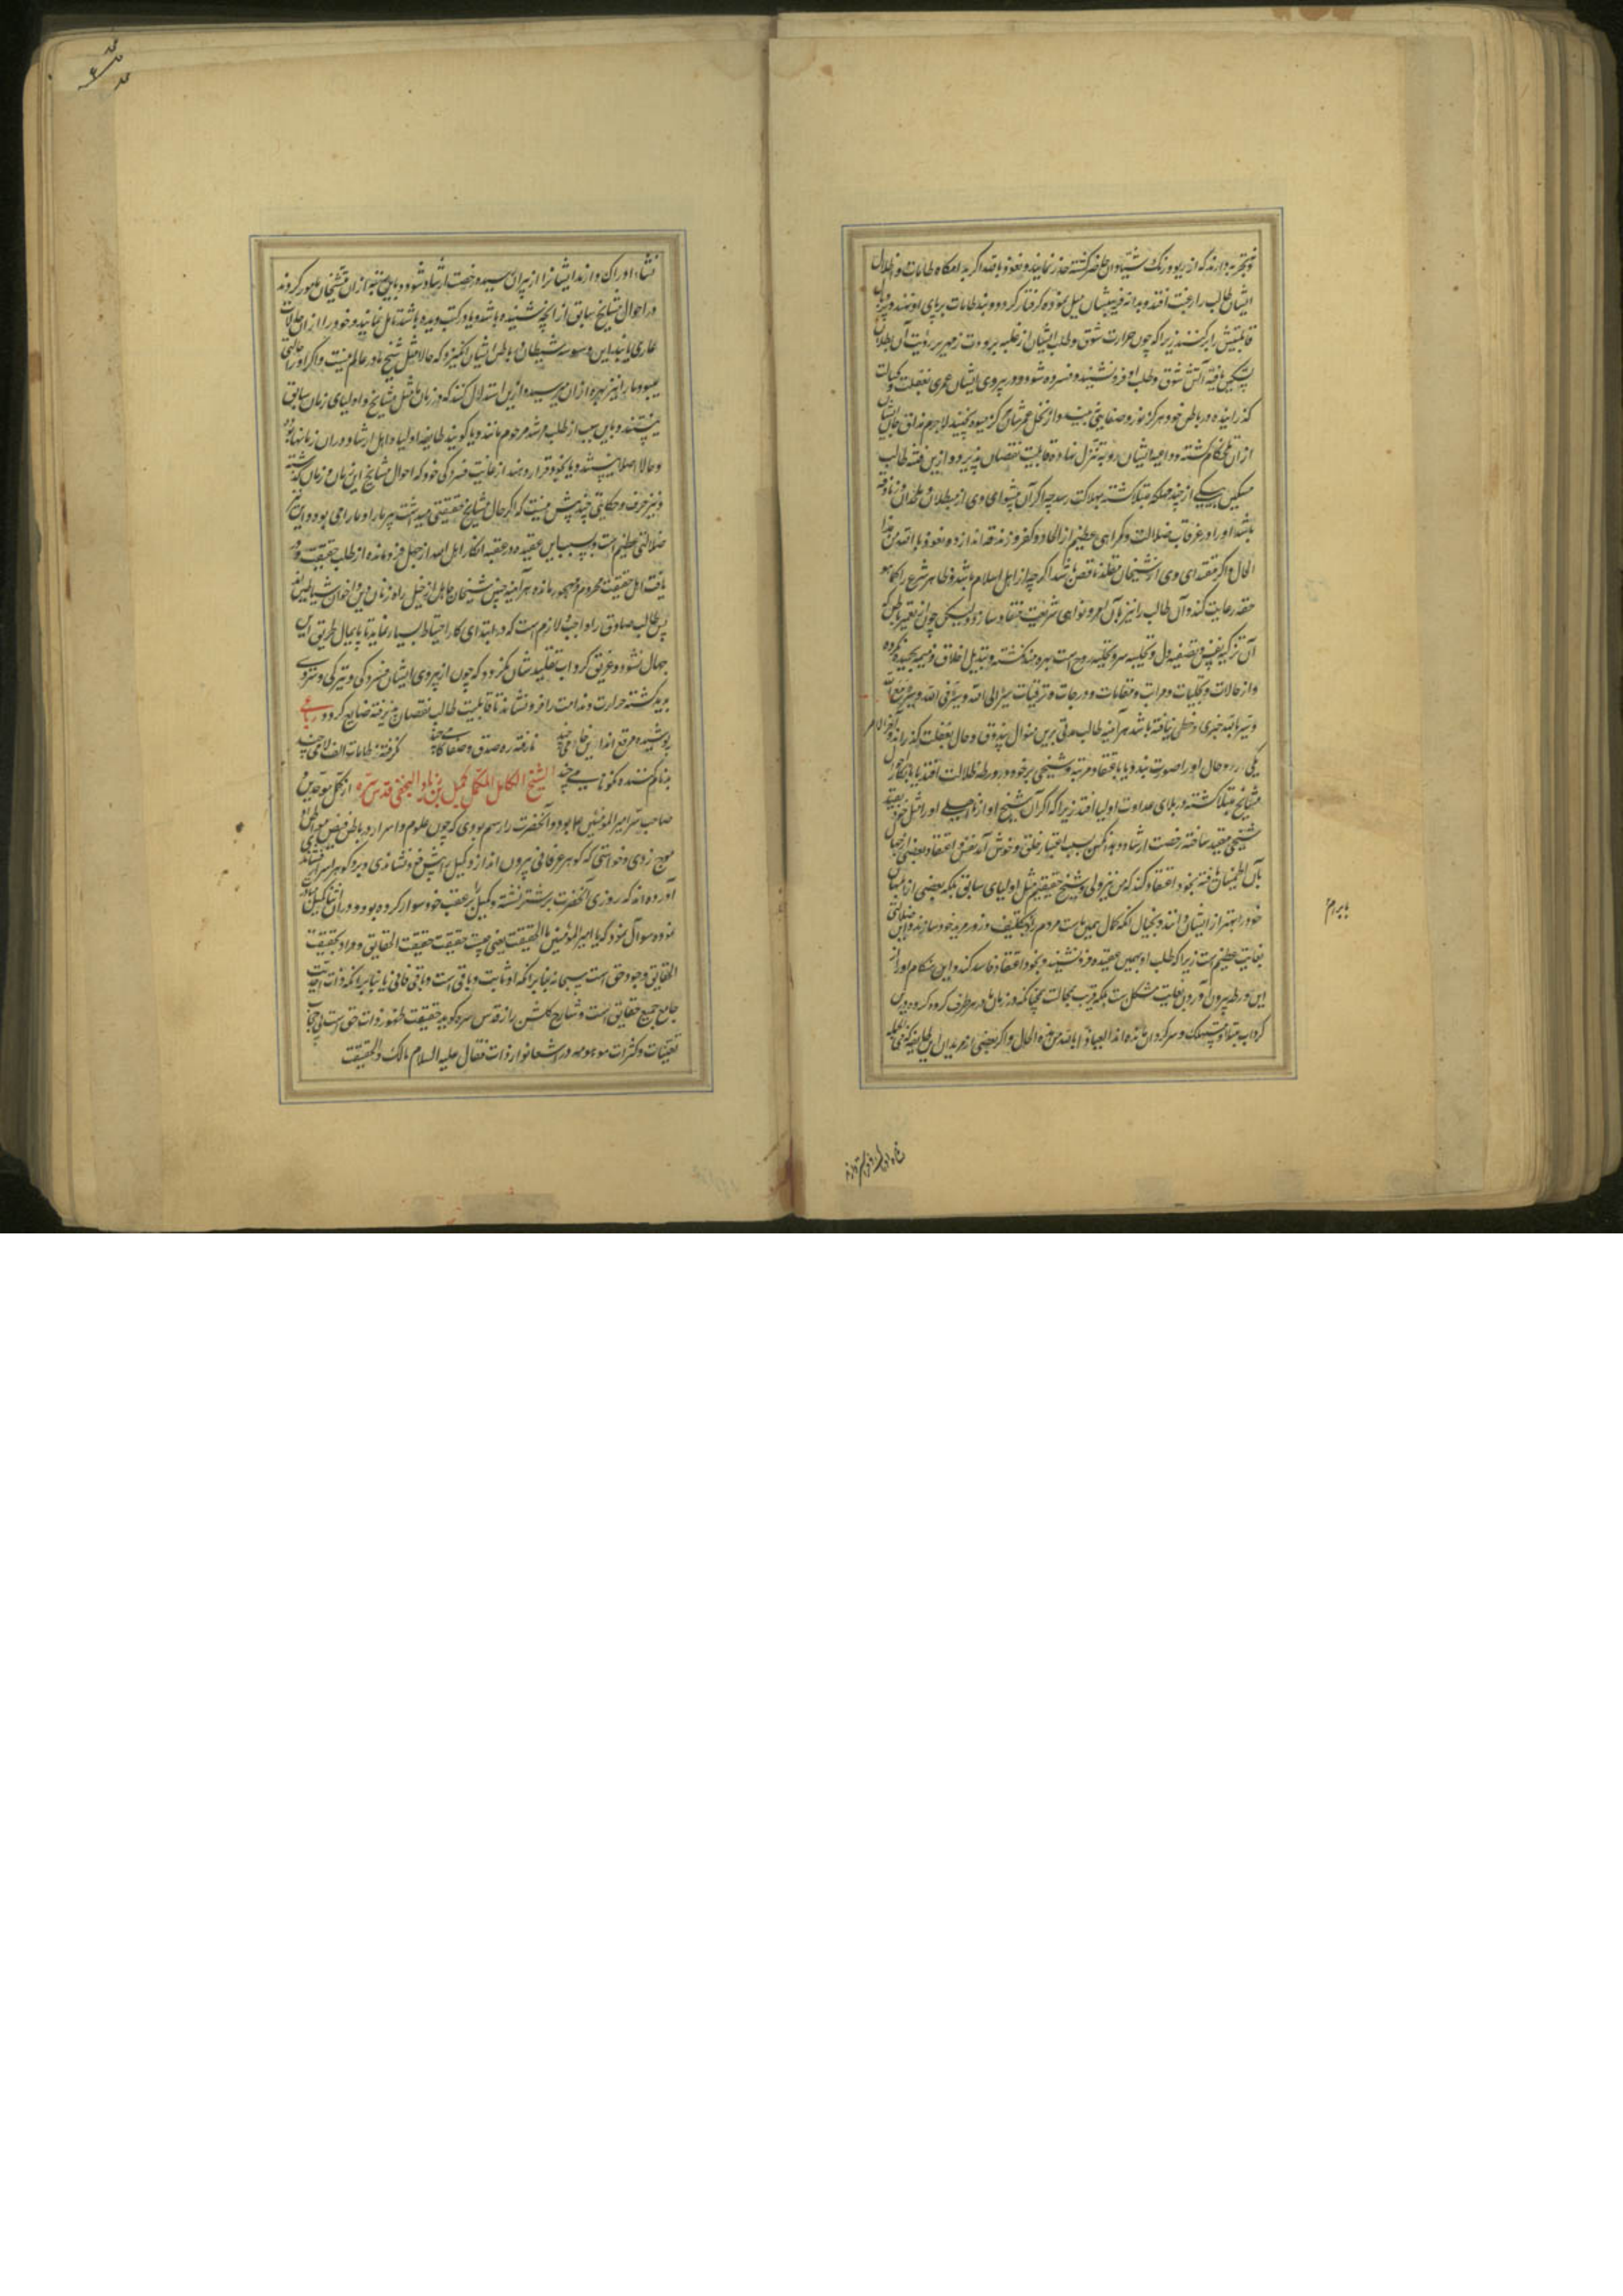 ایشان طالب را رغبت افتد و بدانه فریبشان میل نموده گرفتار گردد و بند طامات بر پای او نهند و پر و بال
قابلیتش را برکنند زیرا که چون حرارت شوق و طلب ایشان از غلبه برودت زمهریر رؤیت آن بطلان
تسکین یافته آتش شوق و طلب او فرو نشیند و فسرده شود و در پیروی ایشان عمری بغفلت و
گذرانیده در باطن خود هرگز نور و صفایی نبیند و از نخل عمرشان هرگز میوه نچیند لاجرم مذاق جان
از آن تلخکام گشته و داعیه ایشان رو به تنزل نهاده قابلیت نقصان پذیرد و ازین فتنه طالب
مسکین به یکی از چند مهلکه مبتلا گشته بهلاکت رسد چه اگر آن پیشوای وی از مبطلان و ملحدان و زنادقه
باشد او را در غرقاب ضلالت و گمراهی عظیم از الحاد و کفر و زندقه اندازد و نعوذ بالله من هذا
الحال و اگر مقتدای وی از شیخان مقلد ناقص باشد اگر چه از اهل اسلام باشد و ظاهر شرع را کما هو
حقه رعایت کند و آن طالب را نیز بآن اوامر و نواهی شریعت منقاد سازد و لیکن چون از تغییر باطن که
آن تزکیه نفس و تصفیه دل و تخلیه سر و تجلیه روح است بهره‌مند نگشته و تبدیل اخلاق ذمیمه بحمیده نکرده
و از حالات و تجلیات و مراتب و مقامات و درجات و ترقیات سیر الی الله و سیر فی الله و سیر مع الله
و سیر بالله خبری و حظی نیافته باشد هر آینه طالب مدتی برین منوال بیذوق و حال بغفلت گذراند و آخر الامر
یکی از دو حال او را صورت بندد یا باعتقاد مرتبه و شیخی بر خود در ورطه ظلالت افتد یا بانکار احوال
مشایخ مبتلا گشته در بلای عداوت اولیا افتد زیرا که اگر آن شیخ او از نااهلی او را مثل خود بقید
شیخی مقید ساخته رخصت ارشاد دهد ممکن بسبب اعتبار خلق و خوش آمد نفس و اعتقاد بعضی از جهال
بآن اطمینان یافته بخود اعتقاد کند که من نیز ولی و شیخ حقیقیم مثل اولیای سابق بلکه بعضی از نادانان
خود را بهتر از ایشان دانند و بخیال آنکه کمال همین است مردم را بتکلیف و زور مرید خود سازند و این ضلالتی
بغایت عظیم است زیرا که طلب او بهمین عقیده فرو نشیند و بخود اعتقاد فاسد کند و این هنگام او را از
این ورطه بیرون آوردن بغایت مشکل است بلکه قریب بمحالست چنانکه در زمان ما در هر طرف گروه گروه درین
گرداب مبتلا و مستهلک و سرگردان مانده‌اند العیاذ بالله من هذه الحال و اگر بعضی از مریدان این طایفه که فی الجمله
در احوال مشایخ سابق از آنچه شنیده باشد و یا در کتب دیده باشد تأمل نمایند و خود را از آن حالات
عاری یابند این وسوسه شیطان در باطن ایشان انگیزد که حالا مثل شیخ ما در عالم نیست و اگر او را حالتی
میبود ما را نیز بهره از آن میرسید و ازین استدلال کنند که در زمان ما مثل مشایخ و اولیای زمان سابق
نیستند و باین سبب از طلب مرشد محروم مانند و یا گویند طایفه اولیا و اهل ارشاد در آن زمانها بود
و حالا اصلا نیستند و یا بخود قرار دهند از غایت فسردگی خود که احوال مشایخ این زمان و زمان گذشته
و نیز حرف و حکایتی چند بیش نیست که اگر حال مشایخ حقیقتی میداشت پیر ما را و ما را می بود و این نیز
ضلالتی عظیم است و بسبب این عقیده در عقبه انکار اهل الله از جهل فرو مانده از طلب حقیقت و
یافت اهل حقیقت محروم و مهجور مانده هر آینه چنین شیخان جاهل از خیل راه زنان دین و اخوان شیاطین اند
پس طالب صادق را واجب و لازم است که در ابتدای کار احتیاط بسیار نماید تا پایمال طریق این
جهال نشود و غریق گرداب تقلیدشان نگردد که چون از پیروی ایشان فسردگی و تیرگی و سردی
پدید گشته حرارت و ندامت را فرو نشاند تا قابلیت طالب نقصان پذیرفته ضایع گردد رباعی
پوشیده مرقع اند این خامی چند نارفته ره صدق و صفا گامی چند بگرفته ز طامات الف لامی چند
بدنام کننده نکونامی چند الشیخ الکامل المکمل کمیل بن زیاد النخعی قدس سره از کمل موحدین و
صاحب سر امیر المؤمنین علی بود و آنحضرت را رسم بودی که چون علوم و اسرار در باطن فیض مواطن
موج زدی و خواستی که گوهر عرفانی بیرون اندازد کمیل را پیش خود نشاندی و برو گوهر اسرار افشاندی
آورده‌اند که روزی آنحضرت بر شتر نشسته و کمیل را بر عقب خود سوار کرده بود و در آن اثنا کمیل
نموده سوال نمود که یا امیر المؤمنین ما الحقیقت یعنی چیست حقیقت حقیقت الحقایق و مراد بحقیقت
الحقایق وجود حق است سبحانه بنابر آنکه او ثابت و باقی است و باقی فانی یا بنابر آنکه ذات احدیت
جامع جمیع حقایق است و شارح گلشن راز قدس سره گوید حقیقت ظهور ذات حق است بی حجاب
تعینات و کثرات موهومه در اشعه انوار ذات فقال علیه السلام مالک و الحقیقت